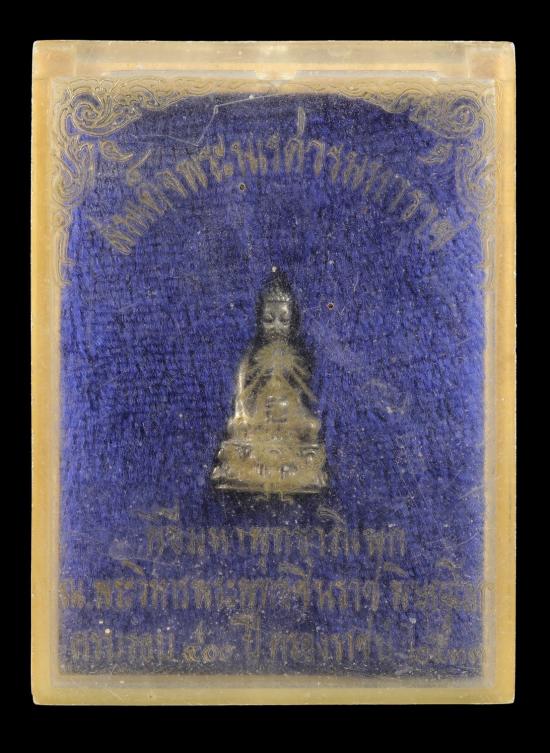 สมเด็จพระนเรศวรมหาราช
พิธีมหาพุทธาภิเษก
ณ.พระวิหารพระพุทธชินราช พิษณุโลก
ครบรอบ ๔๐๐ ปี